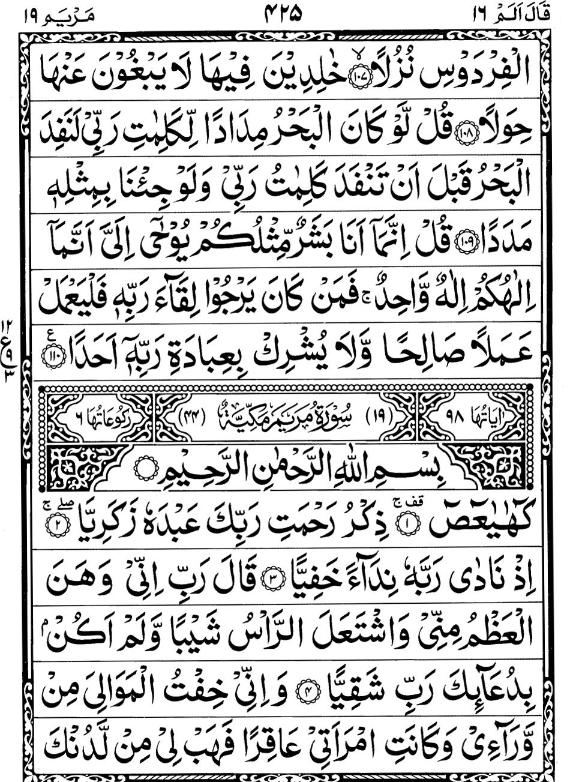 قَالَ اَلَمْ ١٦ ٤٢٥ مَرْيَم ١٩
الْفِرْدَوْسِ نُزُلًا ۙ‏﴿۱۰۷﴾ خٰلِدِيْنَ فِيْهَا لَا يَبْغُوْنَ عَنْهَا
حِوَلًا ﴿۱۰۸﴾ قُلْ لَّوْ كَانَ الْبَحْرُ مِدَادًا لِّكَلِمٰتِ رَبِّيْ لَنَفِدَ
الْبَحْرُ قَبْلَ اَنْ تَنْفَدَ كَلِمٰتُ رَبِّيْ وَلَوْ جِئْنَا بِمِثْلِهٖ
مَدَدًا ﴿۱۰۹﴾ قُلْ اِنَّمَاۤ اَنَا بَشَرٌ مِّثْلُكُمْ يُوْحٰۤى اِلَيَّ اَنَّمَاۤ
اِلٰهُكُمْ اِلٰهٌ وَّاحِدٌ ۚ فَمَنْ كَانَ يَرْجُوْا لِقَآءَ رَبِّهٖ فَلْيَعْمَلْ
عَمَلًا صَالِحًا وَّلَا يُشْرِكْ بِعِبَادَةِ رَبِّهٖۤ اَحَدًا ﴿۱۱۰﴾ ع
۱۲
ع
۹
۳
اٰيَاتُهَا ۹۸ (۱۹) سُوْرَةُ مَرْيَمَ مَكِّيَّةٌ (۴۴) رُكُوْعَاتُهَا ۶
بِسْمِ اللّٰهِ الرَّحْمٰنِ الرَّحِيْمِ
كٓهٰيٰعٓصٓ ﴿۱﴾ قف ج ذِكْرُ رَحْمَتِ رَبِّكَ عَبْدَهٗ زَكَرِيَّا ﴿۲﴾ صلے ج
اِذْ نَادٰى رَبَّهٗ نِدَآءً خَفِيًّا ﴿۳﴾ قَالَ رَبِّ اِنِّيْ وَهَنَ
الْعَظْمُ مِنِّيْ وَاشْتَعَلَ الرَّاْسُ شَيْبًا وَّلَمْ اَكُنْۢ
بِدُعَآئِكَ رَبِّ شَقِيًّا ﴿۴﴾ وَاِنِّيْ خِفْتُ الْمَوَالِيَ مِنْ
وَّرَآءِيْ وَكَانَتِ امْرَاَتِيْ عَاقِرًا فَهَبْ لِيْ مِنْ لَّدُنْكَ